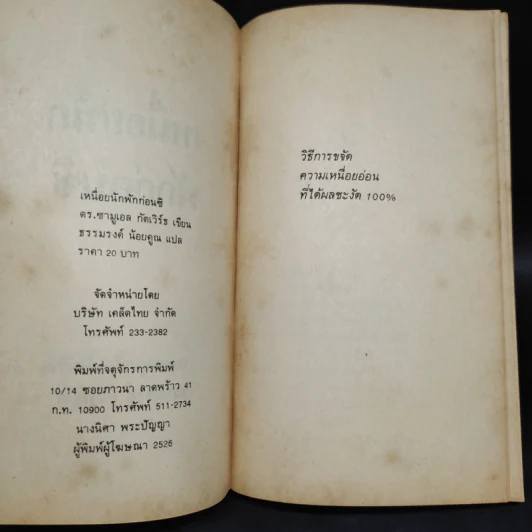 เหนื่อยนักพักก่อนซิ
ดร.ซามูเอล กัตเวิร์ธ เขียน
ธรรมรงค์ น้อยคูณ แปล
ราคา 20 บาท
จัดจำหน่ายโดย
บริษัท เคล็ดไทย จำกัด
โทรศัพท์ 233-2382
พิมพ์ที่จตุจักรการพิมพ์
10/14 ซอยภาวนา ลาดพร้าว 41
ก.ท. 10900 โทรศัพท์ 511-2734
นางนิศา พระปัญญา
ผู้พิมพ์ผู้โฆษณา 2526
วิธีการขจัด
ความเหนื่อยอ่อน
ที่ได้ผลชะงัด 100%